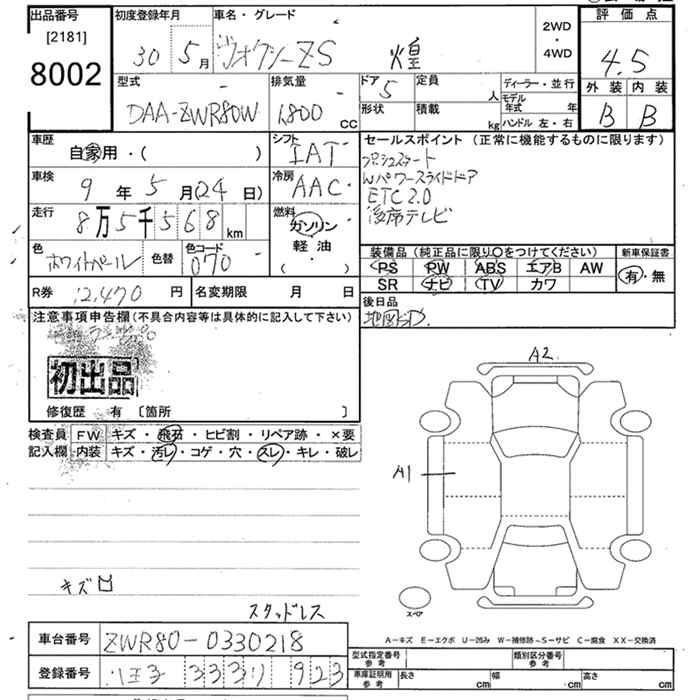 出品番号
[2181]
8002
初度登録年月
30 5月
車名・グレード
ヴォクシーZS 煌
2WD
・
4WD
評価点
4.5
外装 内装
B B
型式
DAA-ZWR80W
排気量
1,800 CC
ドア
5
定員
人
形状
積載
kg
ディーラー・並行
モデル年式 年
ハンドル 左・右
車歴
自家用・( )
シフト
IAT
車検
9年5月(24日)
冷房
AAC
走行
8万5千568km
燃料
ガソリン
軽油
( )
色
ホワイトパール
色替
色コード
070
セールスポイント (正常に機能するものに限ります)
プッシュスタート
Wパワースライドドア
ETC2.0
後席テレビ
装備品(純正品に限り〇をつけてください)
PS PW ABS エアB AW
SR ナビ TV カワ
新車保証書
有・無
R券 12,470円
名変期限 月 日
後日品
注意事項申告欄(不具合内容等は具体的に記入して下さい)
初出品
修復歴 有 [箇所 ]
検査員 FW キズ・飛石・ヒビ割・リペア跡・×要
記入欄 内装 キズ・汚レ・コゲ・穴・スレ・キレ・破レ
A2
A1
スペア
キズ
スタッドレス
A-キズ E-エクボ U-凹み W-補修跡 S-サビ C-腐食 XX-交換済
車台番号 ZWR80-0330218
登録番号 八王子 333 923
型式指定番号
参考
類別区分番号
参考
車庫証明用
参考
長さ cm 幅 cm 高さ cm